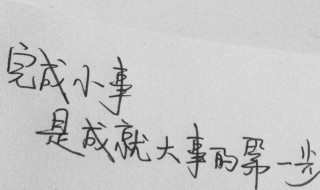 完成小事
是成就大事的第一步